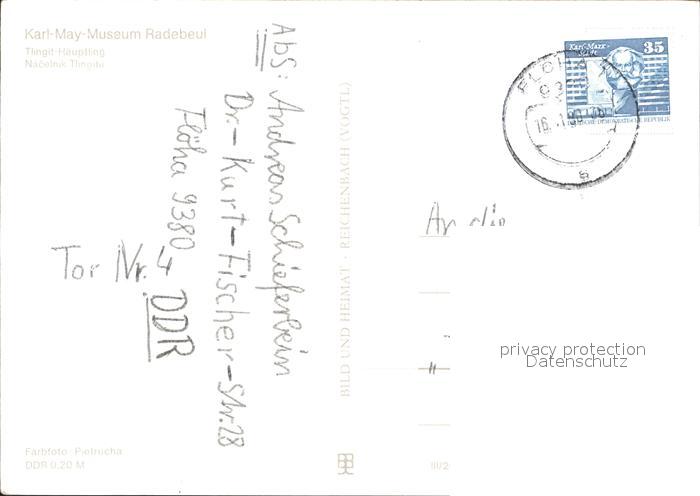 Karl-May-Museum Radebeul
Tlingit-Häuptling
Náčelnik Tlingitu
Abs: Andreas Schieferbein
Dr.-Kurt-Fischer-Str. 28
Flöha 9380
DDR
Tor Nr. 4
BILD UND HEIMAT · REICHENBACH (VOGTL)
Karl-Marx-
Stadt
35
DEUTSCHE DEMOKRATISCHE REPUBLIK
FLÖHA 1
An die
privacy protection
Datenschutz
Farbfoto: Pietrucha
DDR 0,20 M
III/2